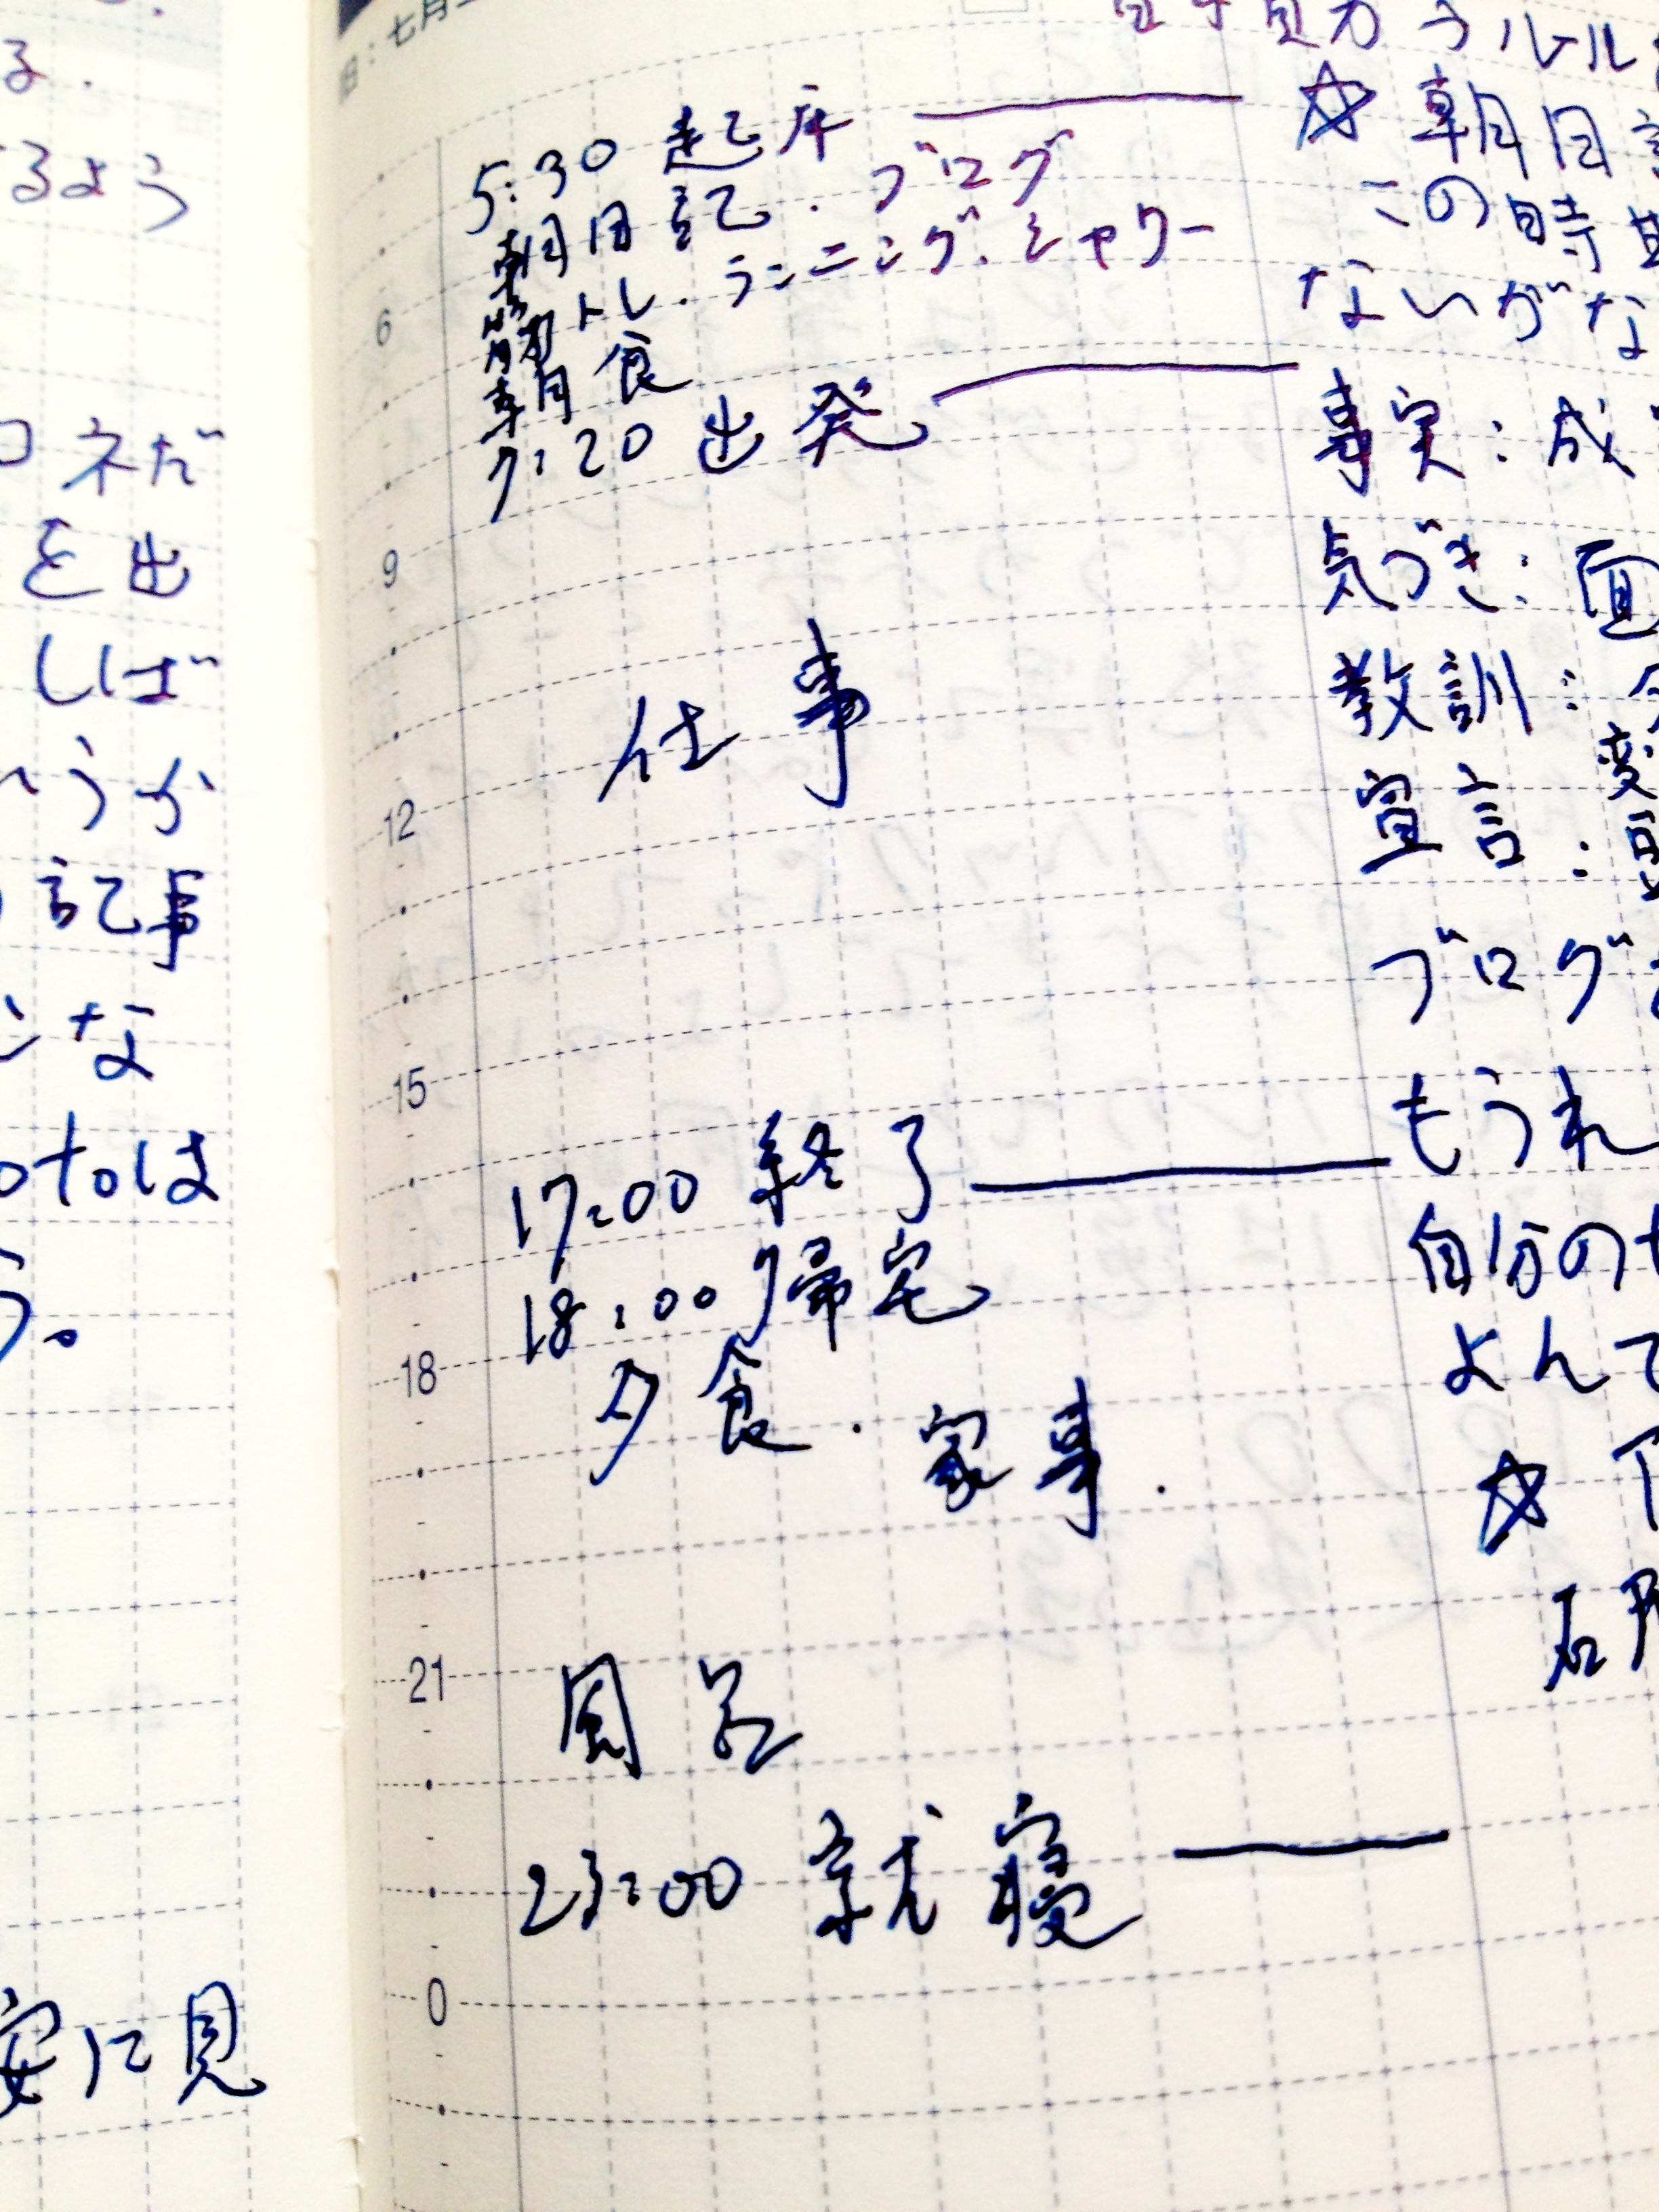 る.
るよう
ネだ
を出
しば
うか
記事
な
otoは
う。
安に見
旧:七月
5:30 起床
朝日記.ブログ
筋トレ.ランニング.シャワー
朝食
7:20 出発
6
9
仕事
12
15
17:00 終了
18:00 帰宅
18
夕食.家事.
21
風呂
23:00 就寝
0
☆ 朝日記
この時期
ないがな
事実:成
気づき:面
教訓:今
変
宣言:
ブログ
もうれ
自分の
よんで
☆ 下
右